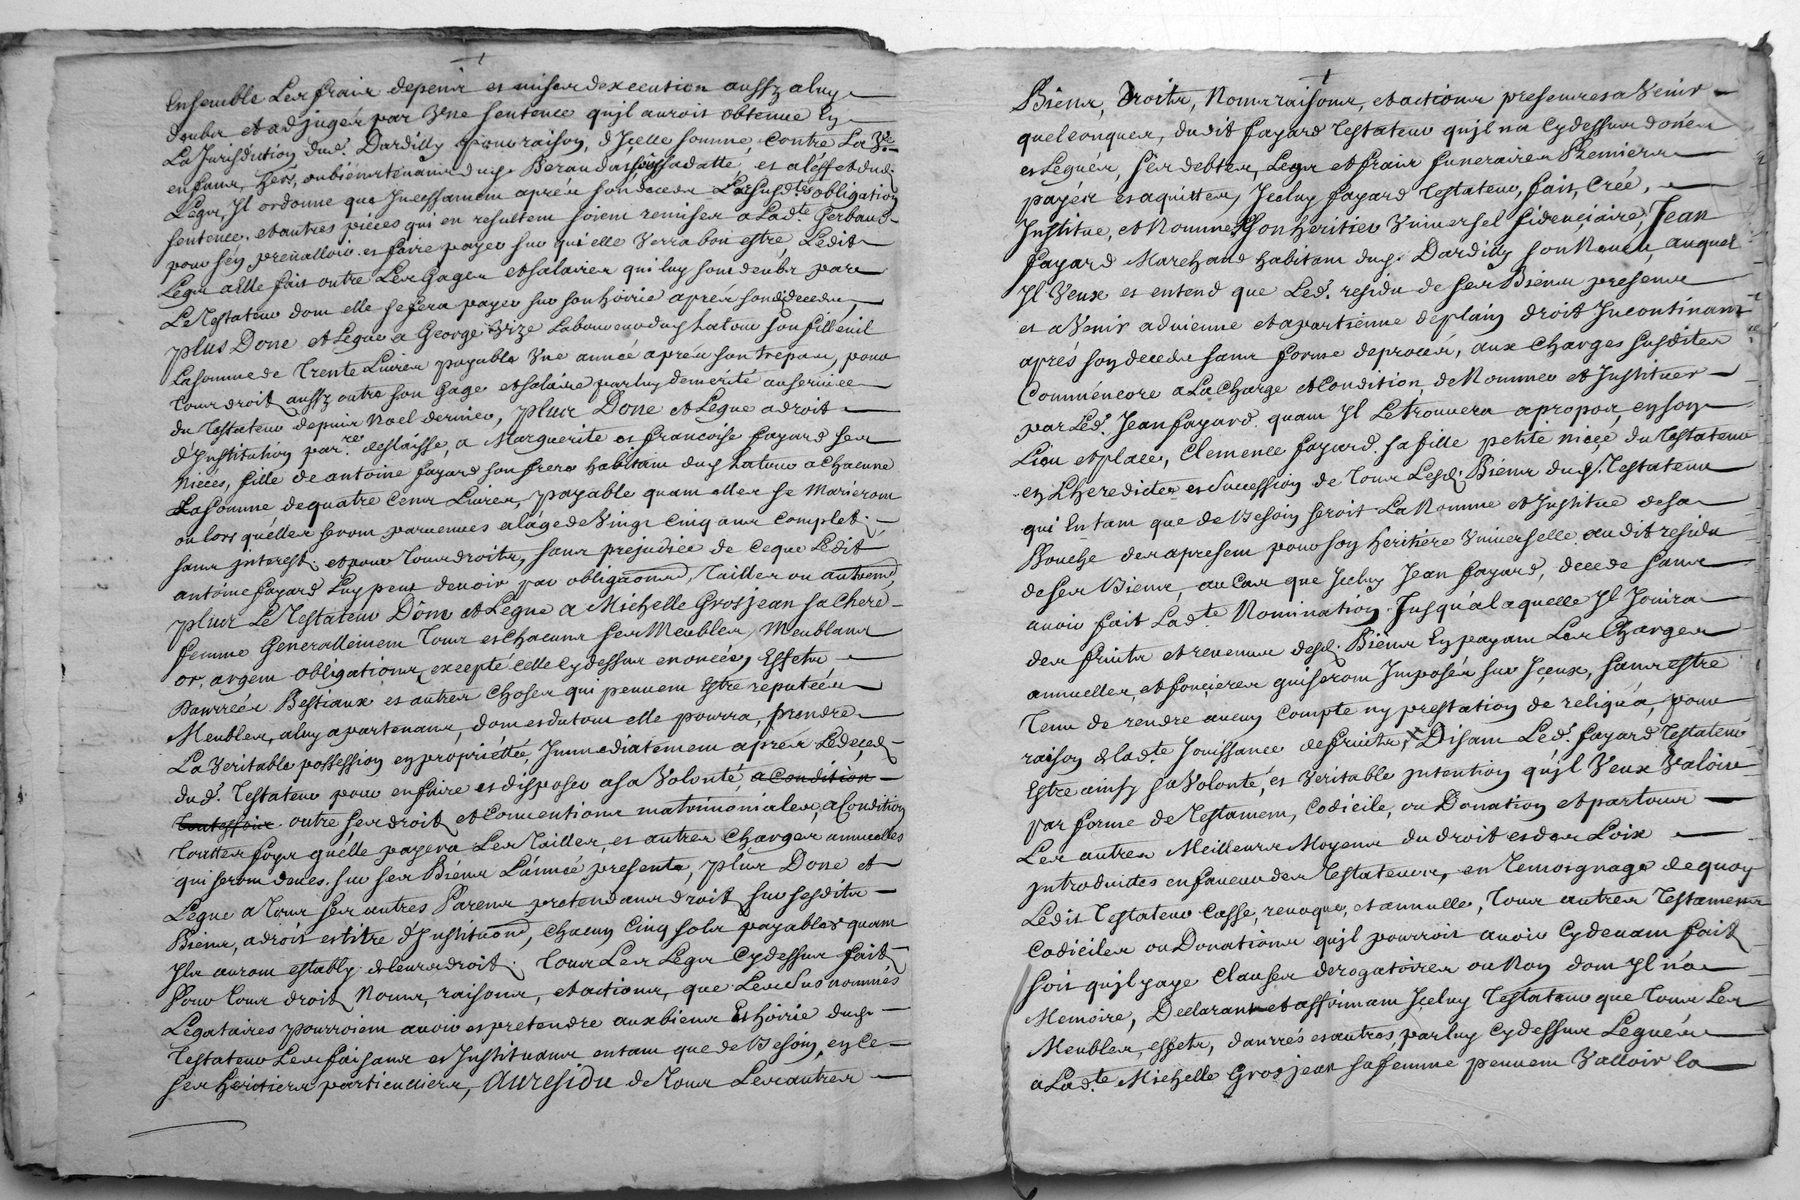 Ensemble Les frais depens et mises dexecution aussy a luy
deubs et adjugés par Une sentence qu'jl auroit obtenue En
La Jurisdiction dud. Dardilly pour raison, d'Jcelle somme, contre La Ve.
enfans, hers, ou bientenans dud. Beraud a sa datte, et a l'effet dud.
Legs, Jl ordonne que Jncessamment aprés son deceds Lasusdte obligation
sentence, et autres piéces qui en resultent soient remises a Ladte Gerbaud
pour s'en prevalloir et faire payer sur qui elle Verra bon estre, Ledit
Legs a Elle fait outre Les Gages et salaires qui luy sont deubs par
Le Testateur dont elle se fera payer sur son hoirie aprés sondt deceds,
plus Done et Legue a George Vize Laboureur dud. hatour son filleuil
La somme de Trente Livres payable Une année aprés son trepas, pour
tout droit aussy outre son Gage et salaire par luy demérité au service
du Testateur depuis Noel dernier, plus Done et Legue a droit
d'Institution parre. delaisse, a Marguerite et francoise fayard ses
niéces, fille de antoine fayard son frere habitant dud. hatour a chacune
La somme de quatre Cens Livres, payable quant elles se Marieront
ou lors qu'elles seront parvenues a l'age de Vingt Cinq ans complet
sans jnterest, et pour Tous droits, sans prejudice de ce que Ledit
antoine fayard Luy peut devoir par obligations, Tailles ou autrem.
plus Le Testateur Done et Legue a Michelle Grosjean sa Chere
femme Generallement Tous et Chacuns ses Meubles, Meublans
or, argent obligations, excepté celle Cy dessus enoncée, Effets
Danrrées Bestiaux et autres Choses qui peuvent Estre reputées
Meubles, a luy apartenans, dont et du tout elle pourra, prendre
La Veritable possession en propriétté, Jmmediatement aprés Le deced
dud. Testateur pour en faire et disposer a sa Volonté, a Condition
Touttesfois outre ses droits et Conventions matrimoniales, a Condition
Touttes foys qu'elle payera Les Tailles, et autres Charges annuelles
qui seront deues sur ses Biens L'année presente, plus Done et
Legue a Tous ses autres Parens pretendans droit sur sesdits
Biens, a droit et titre d'Institution, chacun Cinq sols payables quant
Jls auront estably de leurs droit. Tous Les Legs Cy dessus fait
Pour Tous droit, Noms, raisons, et actions, que Les Susnommés
Legataires pourroient avoir et pretendre aux biens Et hoirie dud.
Testateur Les faisans et Jnstituans en tant que de Besoin, en Ce
ses heritiers particuliers, Au residu de Tous Les autres
Biens, Droits, Noms raisons, et actions presens et a Venir
quelconques, dudit fayard Testateur qu'jl n'a Cy dessus donés
et Legués, ses debtes, Legs et frais funeraires Premiers
payés et aquittes, Jceluy fayard Testateur, fait, Créé,
Jnstitue, et Nomme Son heritier Universel fideiciaire, Jean
fayard Marchand habitant dud. Dardilly son Neveu, auquel
Jl Veux et entend que Led. residu de ses Biens presens
et a Venir advienne et apartienne de plain droit Jncontinant
aprés son deceds sans forme de procés, aux Charges susdites
Comm'encore a La Charge et Condition, de Nommer et Jnstituer
par Led. Jean fayard quant Jl Le trouvera a propos, en son
Lieu et place, Clemence fayard sa fille petite niece du Testateur
en L'heredité et Succession de Tous Lesd. Biens dud. Testateur
qui En tant que de Besoin seroit La Nomme et Jnstitue de sa
Bouche des apresent pour son heritière Universelle audit residu
de ses Biens, au Cas que Jceluy Jean fayard, decede sans
avoir fait Ladte Nomination. Jusqu'a Laquelle Jl Jouira
des fruits et revenus desd. Biens En payant Les Charges
annuelles, et foncieres qui seront Jmposés sur Jceux, sans estre
Tenu de rendre aucun Compte ny prestation de reliqua, pour
raison de Ladte Jouissance de fruits, Disant Led. fayard Testateur
Estre ainsy sa Volonté, et Veritable jntention qu'jl Veux Valoir
par forme de Testament, Codicile, ou Donation et par tous
Les autres Meilleurs Moyens du droit et des Loix
jntroduittes en faveur des Testateurs, en Temoignage de quoy
Ledit Testateur Casse, revoque, et annulle, Tous autres Testamens
Codiciles ou Donations qu'jl pourroit avoir Cy devant fait
soit qu'jl y aye Clauses derogatoires ou Non dont Jl n'a
Memoire, Declarant et affirmant Jceluy Testateur que Tous Les
Meubles, effets, danrrés et autres, par luy Cy dessus Legués
a Ladte Michelle Grosjean sa femme peuvent Valloir la